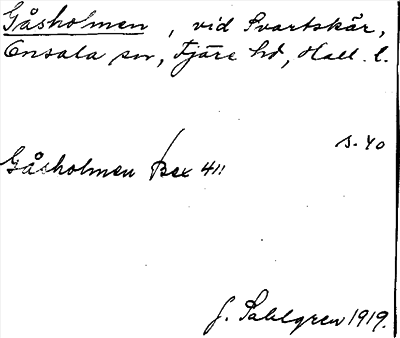 Gåsholmen, vid Svartskär,
Onsala sn, Fjäre hd, Hall. l.
s. 40
Gåsholmen Bex 411
J. Sahlgren 1919.